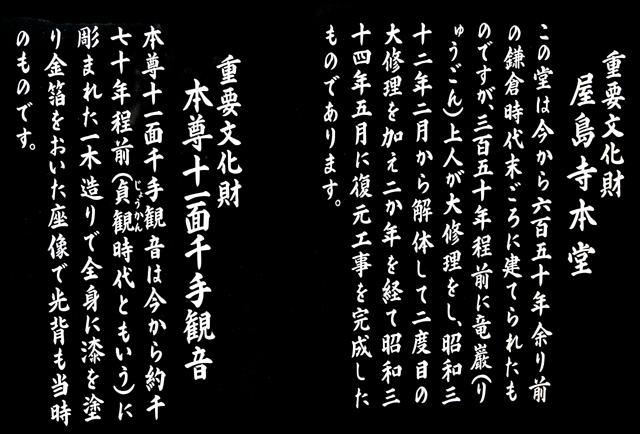 重要文化財
屋島寺本堂
この堂は今から六百五十年余り前
の鎌倉時代末ごろに建てられたも
のですが、三百五十年程前に竜巌(り
ゅうごん)上人が大修理をし、昭和三
十二年二月から解体して二度目の
大修理を加え二か年を経て昭和三
十四年五月に復元工事を完成した
ものであります。
重要文化財
本尊十一面千手観音
本尊十一面千手観音は今から約千
七十年程前(貞観じょうかん時代ともいう)に
彫まれた一木造りで全身に漆を塗
り金箔をおいた座像で光背も当時
のものです。